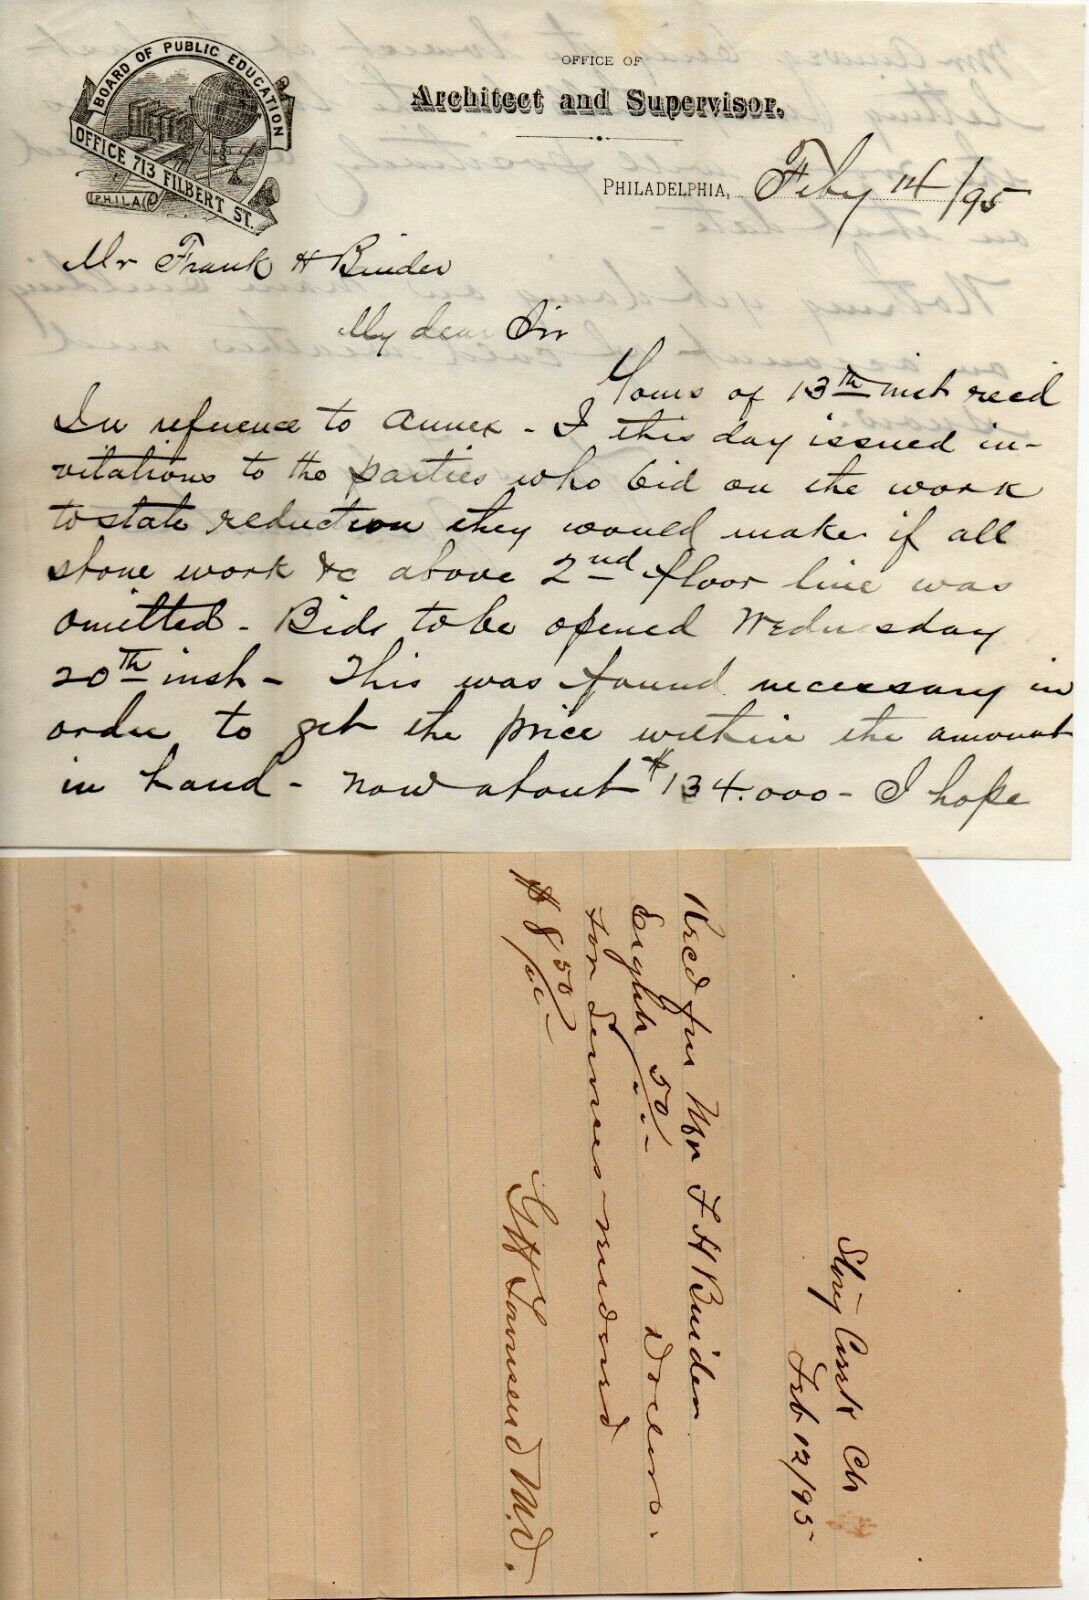 BOARD OF PUBLIC EDUCATION
OFFICE 713 FILBERT ST.
PHILA
OFFICE OF
Architect and Supervisor.
PHILADELPHIA, Feby 14/95
Mr Frank H Binder
My dear Sir
Yours of 13th inst recd
In reference to Annex - I this day issued in-
vitations to the parties who bid on the work
to state reduction they would make if all
stone work &c above 2nd floor line was
omitted - Bids to be opened Wednesday
20th inst - This was found necessary in
order to get the price within the amount
in hand - now about $134.000 - I hope
Feb 12/95
Recd fm Mr F H Binder
Eight 50/.. - Dollars.
for Services rendered
$8 50/
G W Townsend M.D.